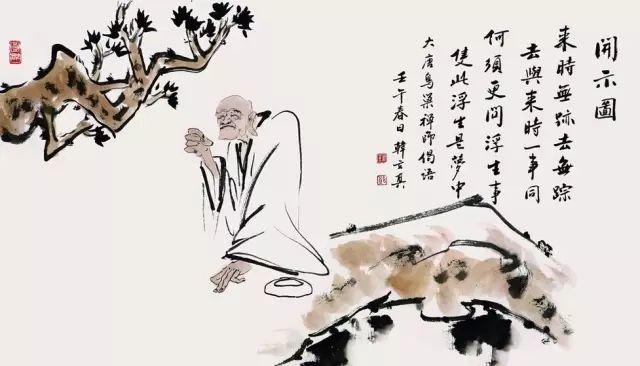 開示圖
来時無跡去無踪
去與来時一事同
何須更問浮生事
隻此浮生是夢中
大唐鳥巢禅師偈语
壬午春日韓玄真